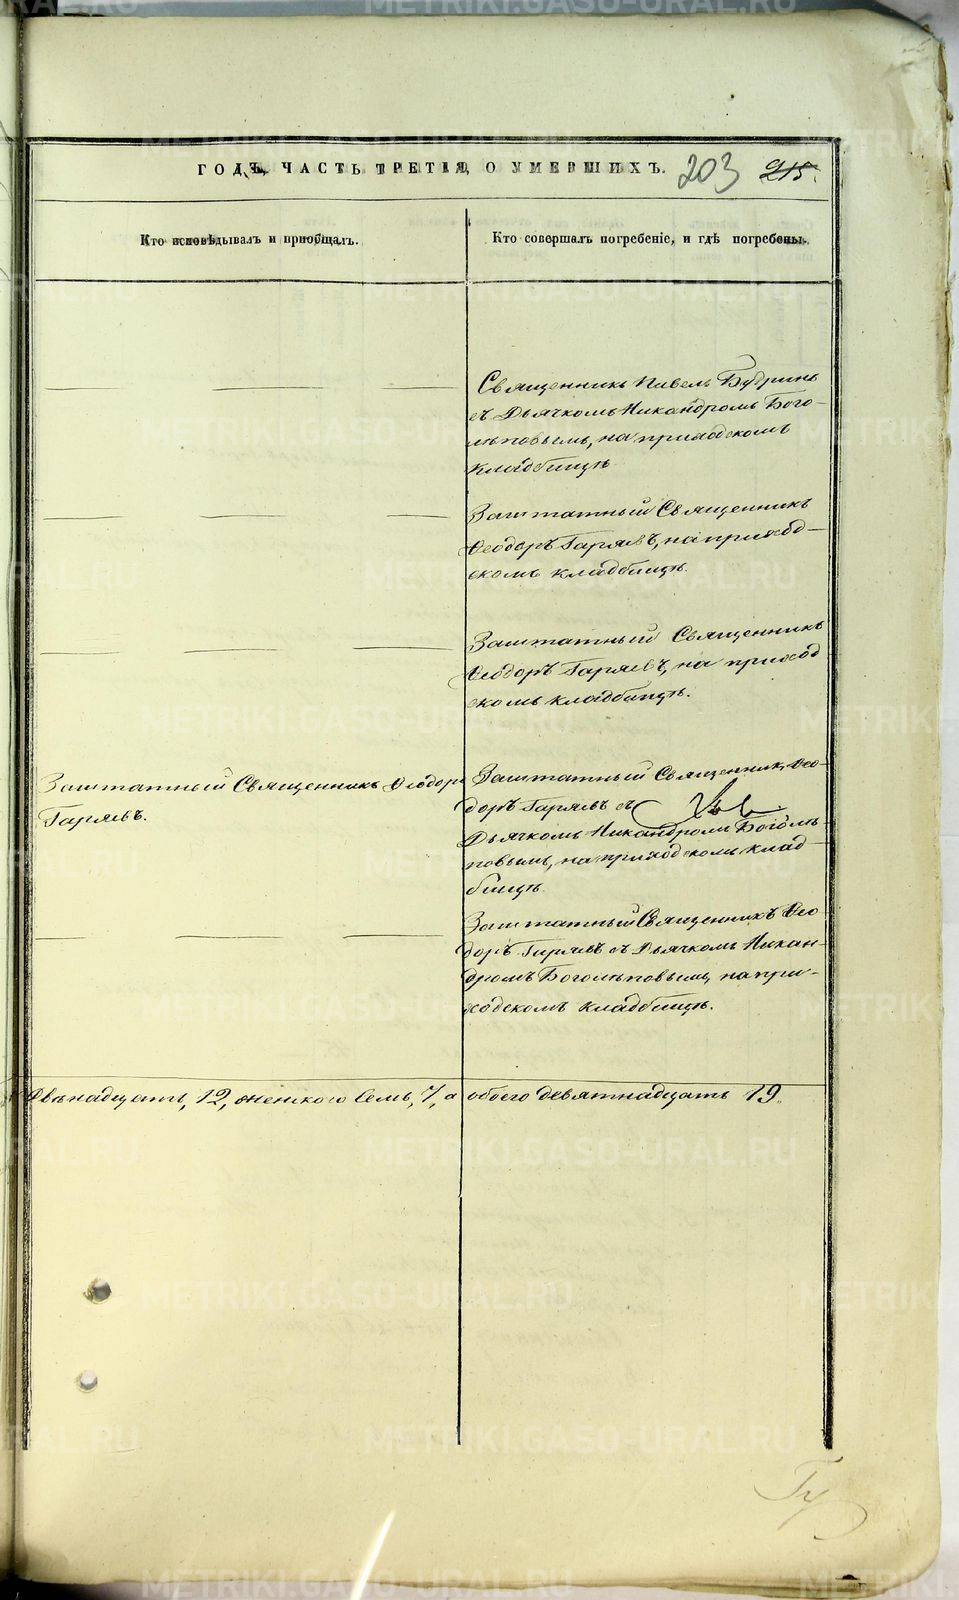 ГОДЪ, ЧАСТЬ ТРЕТІЯ, О УМЕРШИХЪ. 203 215.
Кто исповѣдывалъ и пріобщалъ.
Кто совершалъ погребеніе, и гдѣ погребены.
Священникъ Павелъ Будринъ
съ Дьячкомъ Никандромъ Бого-
лѣповымъ, на приходскомъ
кладбищѣ
Заштатный Священникъ
Ѳеодоръ Гаряевъ, на приход-
скомъ кладбищѣ.
Заштатный Священникъ
Ѳеодоръ Гаряевъ, на приход
скомъ кладбищѣ.
Заштатный Священникъ Ѳеодоръ
Гаряевъ.
Заштатный Священникъ Ѳео-
доръ Гаряевъ съ
Дьячкомъ Никандромъ Боголѣ-
повымъ, на приходскомъ клад-
бищѣ.
Заштатный Священникъ Ѳео
доръ Гаряевъ съ Дьячкомъ Никан-
дромъ Боголѣповымъ, на при-
ходскомъ кладбищѣ.
Двѣнадцать, 12, женского Семь, 7, а обоего девятнадцать 19.
METRIKI.GASO-URAL.RU